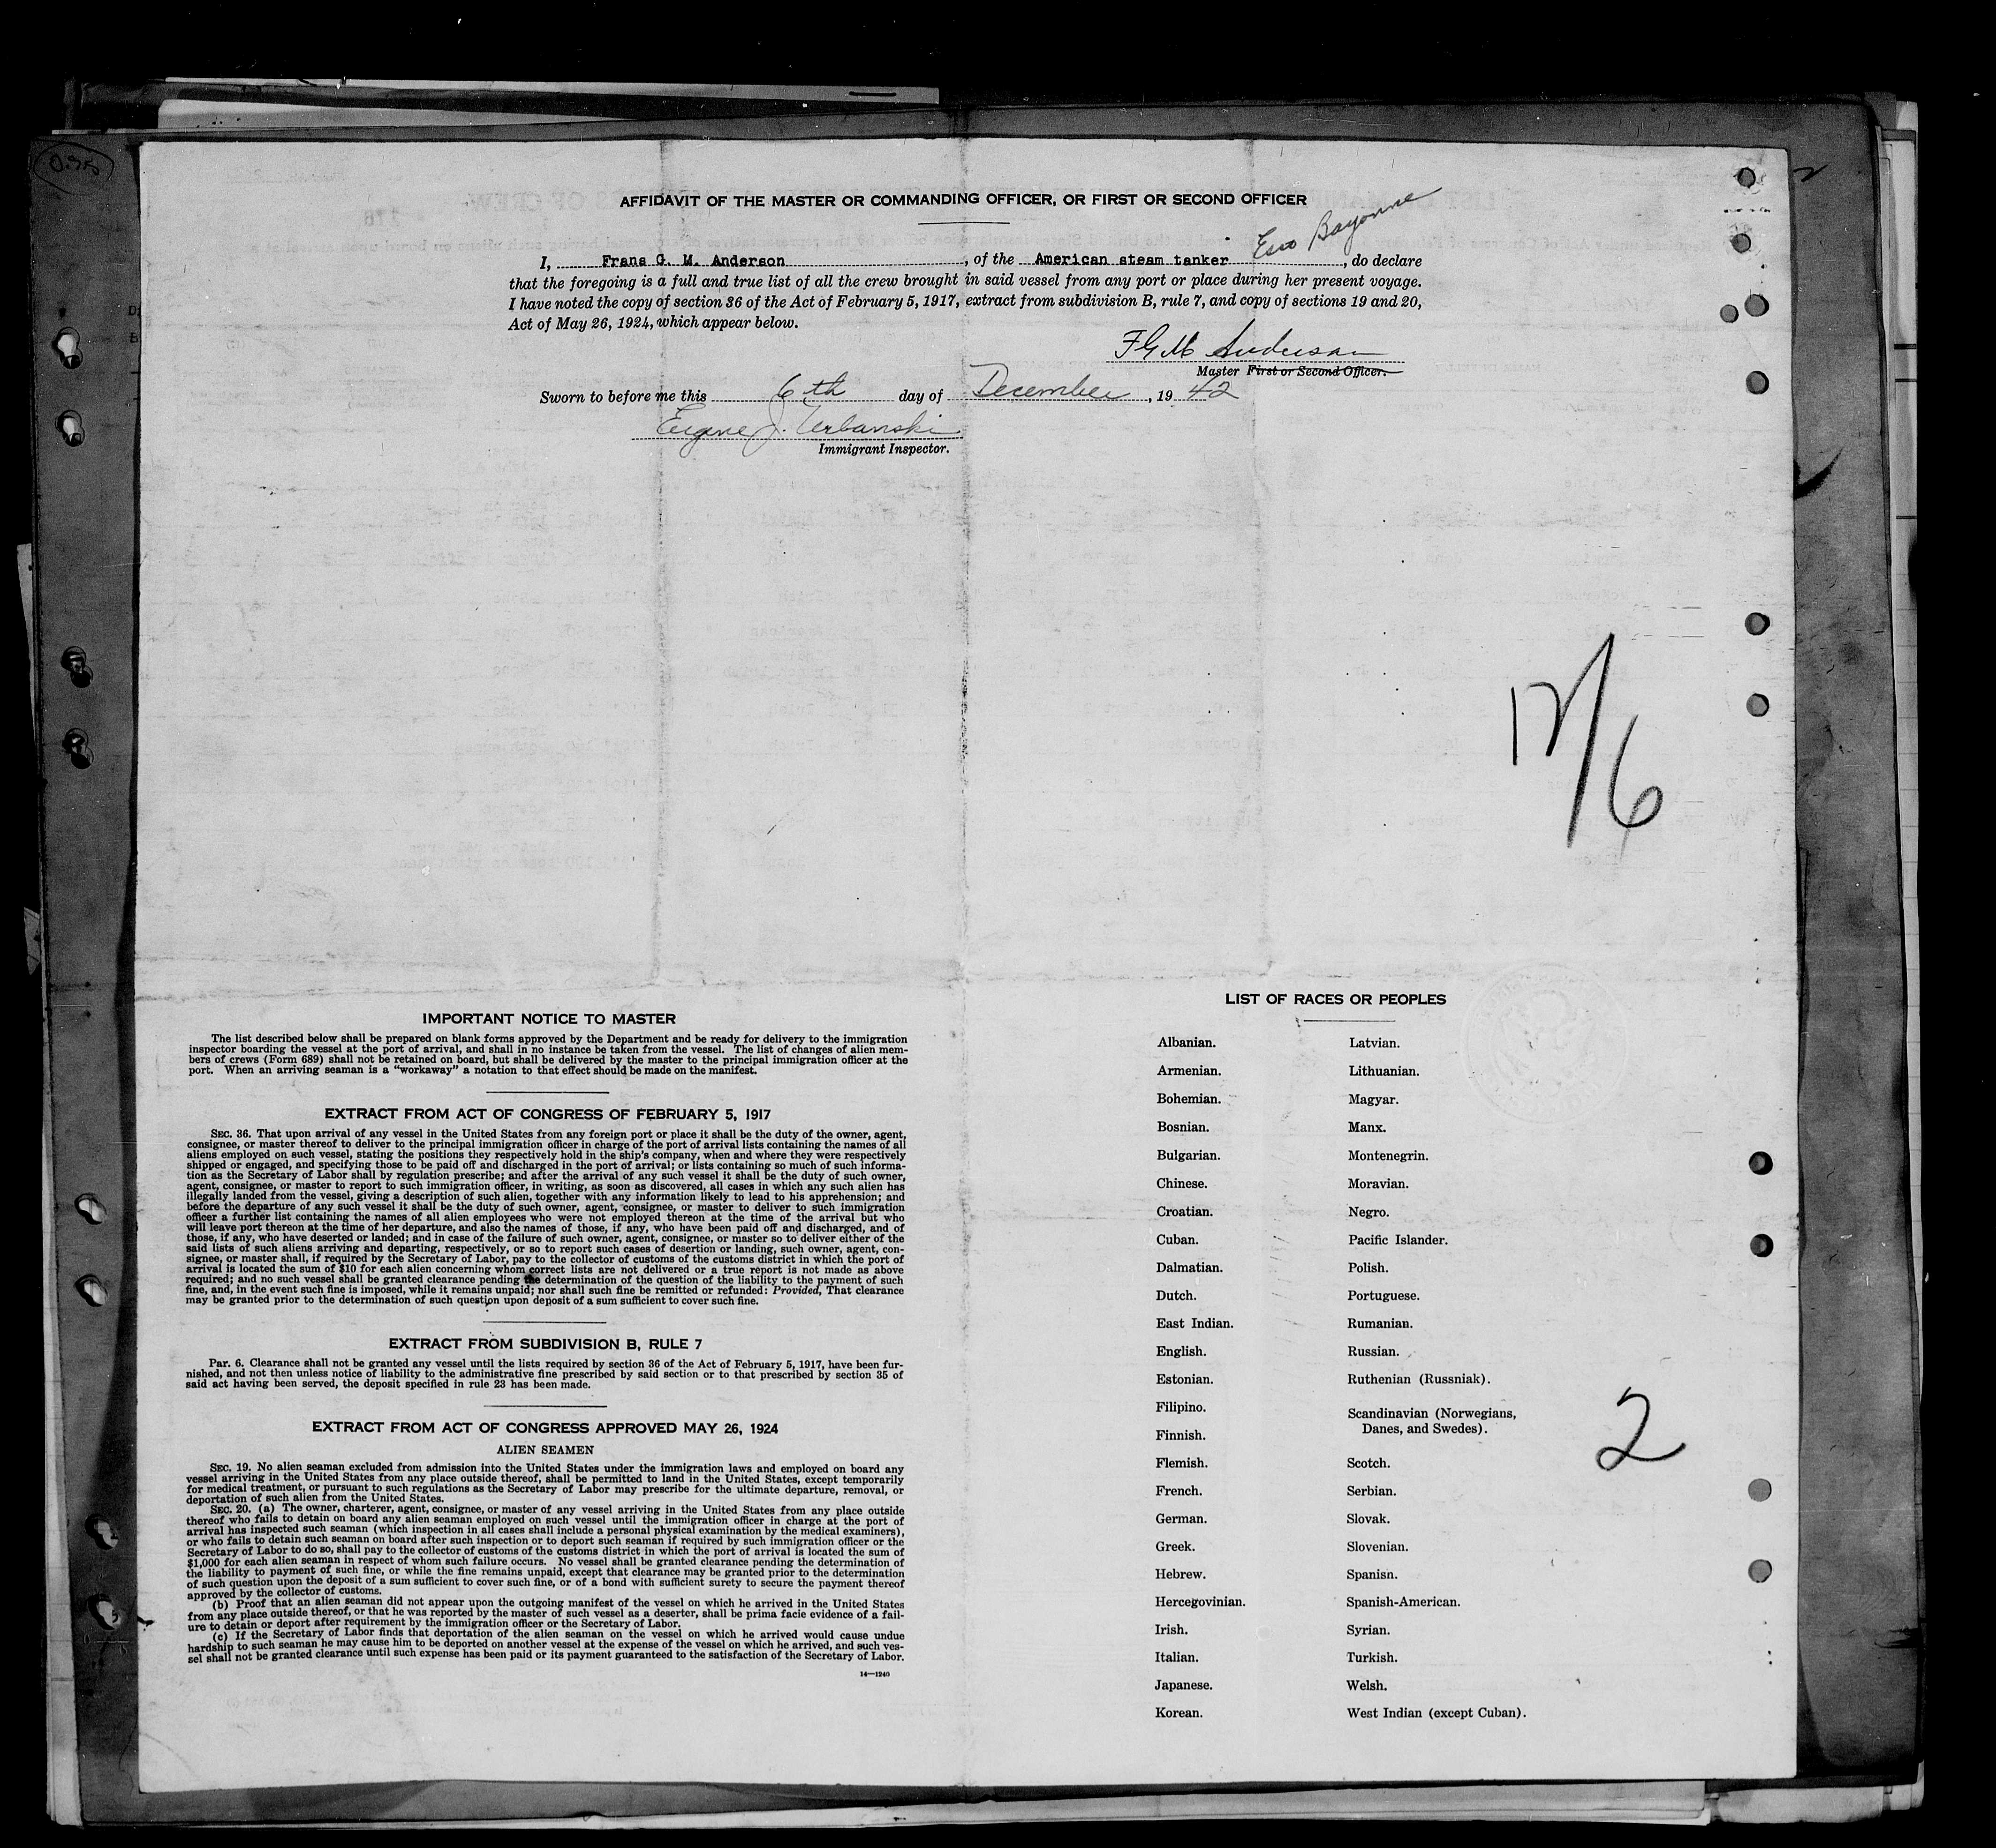 0.75
AFFIDAVIT OF THE MASTER OR COMMANDING OFFICER, OR FIRST OR SECOND OFFICER
Esso Bayonne
I, Frans G. M. Anderson, of the American steam tanker, do declare
that the foregoing is a full and true list of all the crew brought in said vessel from any port or place during her present voyage.
I have noted the copy of section 36 of the Act of February 5, 1917, extract from subdivision B, rule 7, and copy of sections 19 and 20,
Act of May 26, 1924, which appear below.
FGM Anderson
Master First or Second Officer.
Sworn to before me this 6th day of December, 1942
Eugene J. Urbanski
Immigrant Inspector.
12/6
IMPORTANT NOTICE TO MASTER
The list described below shall be prepared on blank forms approved by the Department and be ready for delivery to the immigration
inspector boarding the vessel at the port of arrival, and shall in no instance be taken from the vessel. The list of changes of alien mem-
bers of crews (Form 689) shall not be retained on board, but shall be delivered by the master to the principal immigration officer at the
port. When an arriving seaman is a "workaway" a notation to that effect should be made on the manifest.
EXTRACT FROM ACT OF CONGRESS OF FEBRUARY 5, 1917
SEC. 36. That upon arrival of any vessel in the United States from any foreign port or place it shall be the duty of the owner, agent,
consignee, or master thereof to deliver to the principal immigration officer in charge of the port of arrival lists containing the names of all
aliens employed on such vessel, stating the positions they respectively hold in the ship's company, when and where they were respectively
shipped or engaged, and specifying those to be paid off and discharged in the port of arrival; or lists containing so much of such informa-
tion as the Secretary of Labor shall by regulation prescribe; and after the arrival of any such vessel it shall be the duty of such owner,
agent, consignee, or master to report to such immigration officer, in writing, as soon as discovered, all cases in which any such alien has
illegally landed from the vessel, giving a description of such alien, together with any information likely to lead to his apprehension; and
before the departure of any such vessel it shall be the duty of such owner, agent, consignee, or master to deliver to such immigration
officer a further list containing the names of all alien employees who were not employed thereon at the time of the arrival but who
will leave port thereon at the time of her departure, and also the names of those, if any, who have been paid off and discharged, and of
those, if any, who have deserted or landed; and in case of the failure of such owner, agent, consignee, or master so to deliver either of the
said lists of such aliens arriving and departing, respectively, or so to report such cases of desertion or landing, such owner, agent, con-
signee, or master shall, if required by the Secretary of Labor, pay to the collector of customs of the customs district in which the port of
arrival is located the sum of $10 for each alien concerning whom correct lists are not delivered or a true report is not made as above
required; and no such vessel shall be granted clearance pending the determination of the question of the liability to the payment of such
fine, and, in the event such fine is imposed, while it remains unpaid; nor shall such fine be remitted or refunded: Provided, That clearance
may be granted prior to the determination of such question upon deposit of a sum sufficient to cover such fine.
EXTRACT FROM SUBDIVISION B, RULE 7
Par. 6. Clearance shall not be granted any vessel until the lists required by section 36 of the Act of February 5, 1917, have been fur-
nished, and not then unless notice of liability to the administrative fine prescribed by said section or to that prescribed by section 35 of
said act having been served, the deposit specified in rule 23 has been made.
EXTRACT FROM ACT OF CONGRESS APPROVED MAY 26, 1924
ALIEN SEAMEN
SEC. 19. No alien seaman excluded from admission into the United States under the immigration laws and employed on board any
vessel arriving in the United States from any place outside thereof, shall be permitted to land in the United States, except temporarily
for medical treatment, or pursuant to such regulations as the Secretary of Labor may prescribe for the ultimate departure, removal, or
deportation of such alien from the United States.
SEC. 20. (a) The owner, charterer, agent, consignee, or master of any vessel arriving in the United States from any place outside
thereof who fails to detain on board any alien seaman employed on such vessel until the immigration officer in charge at the port of
arrival has inspected such seaman (which inspection in all cases shall include a personal physical examination by the medical examiners),
or who fails to detain such seaman on board after such inspection or to deport such seaman if required by such immigration officer or the
Secretary of Labor to do so, shall pay to the collector of customs of the customs district in which the port of arrival is located the sum of
$1,000 for each alien seaman in respect of whom such failure occurs. No vessel shall be granted clearance pending the determination of
the liability to payment of such fine, or while the fine remains unpaid, except that clearance may be granted prior to the determination
of such question upon the deposit of a sum sufficient to cover such fine, or of a bond with sufficient surety to secure the payment thereof
approved by the collector of customs.
(b) Proof that an alien seaman did not appear upon the outgoing manifest of the vessel on which he arrived in the United States
from any place outside thereof, or that he was reported by the master of such vessel as a deserter, shall be prima facie evidence of a fail-
ure to detain or deport after requirement by the immigration officer or the Secretary of Labor.
(c) If the Secretary of Labor finds that deportation of the alien seaman on the vessel on which he arrived would cause undue
hardship to such seaman he may cause him to be deported on another vessel at the expense of the vessel on which he arrived, and such ves-
sel shall not be granted clearance until such expense has been paid or its payment guaranteed to the satisfaction of the Secretary of Labor.
14—1240
LIST OF RACES OR PEOPLES
Albanian.
Armenian.
Bohemian.
Bosnian.
Bulgarian.
Chinese.
Croatian.
Cuban.
Dalmatian.
Dutch.
East Indian.
English.
Estonian.
Filipino.
Finnish.
Flemish.
French.
German.
Greek.
Hebrew.
Hercegovinian.
Irish.
Italian.
Japanese.
Korean.
Latvian.
Lithuanian.
Magyar.
Manx.
Montenegrin.
Moravian.
Negro.
Pacific Islander.
Polish.
Portuguese.
Rumanian.
Russian.
Ruthenian (Russniak).
Scandinavian (Norwegians,
Danes, and Swedes).
Scotch.
Serbian.
Slovak.
Slovenian.
Spanish.
Spanish-American.
Syrian.
Turkish.
Welsh.
West Indian (except Cuban).
2